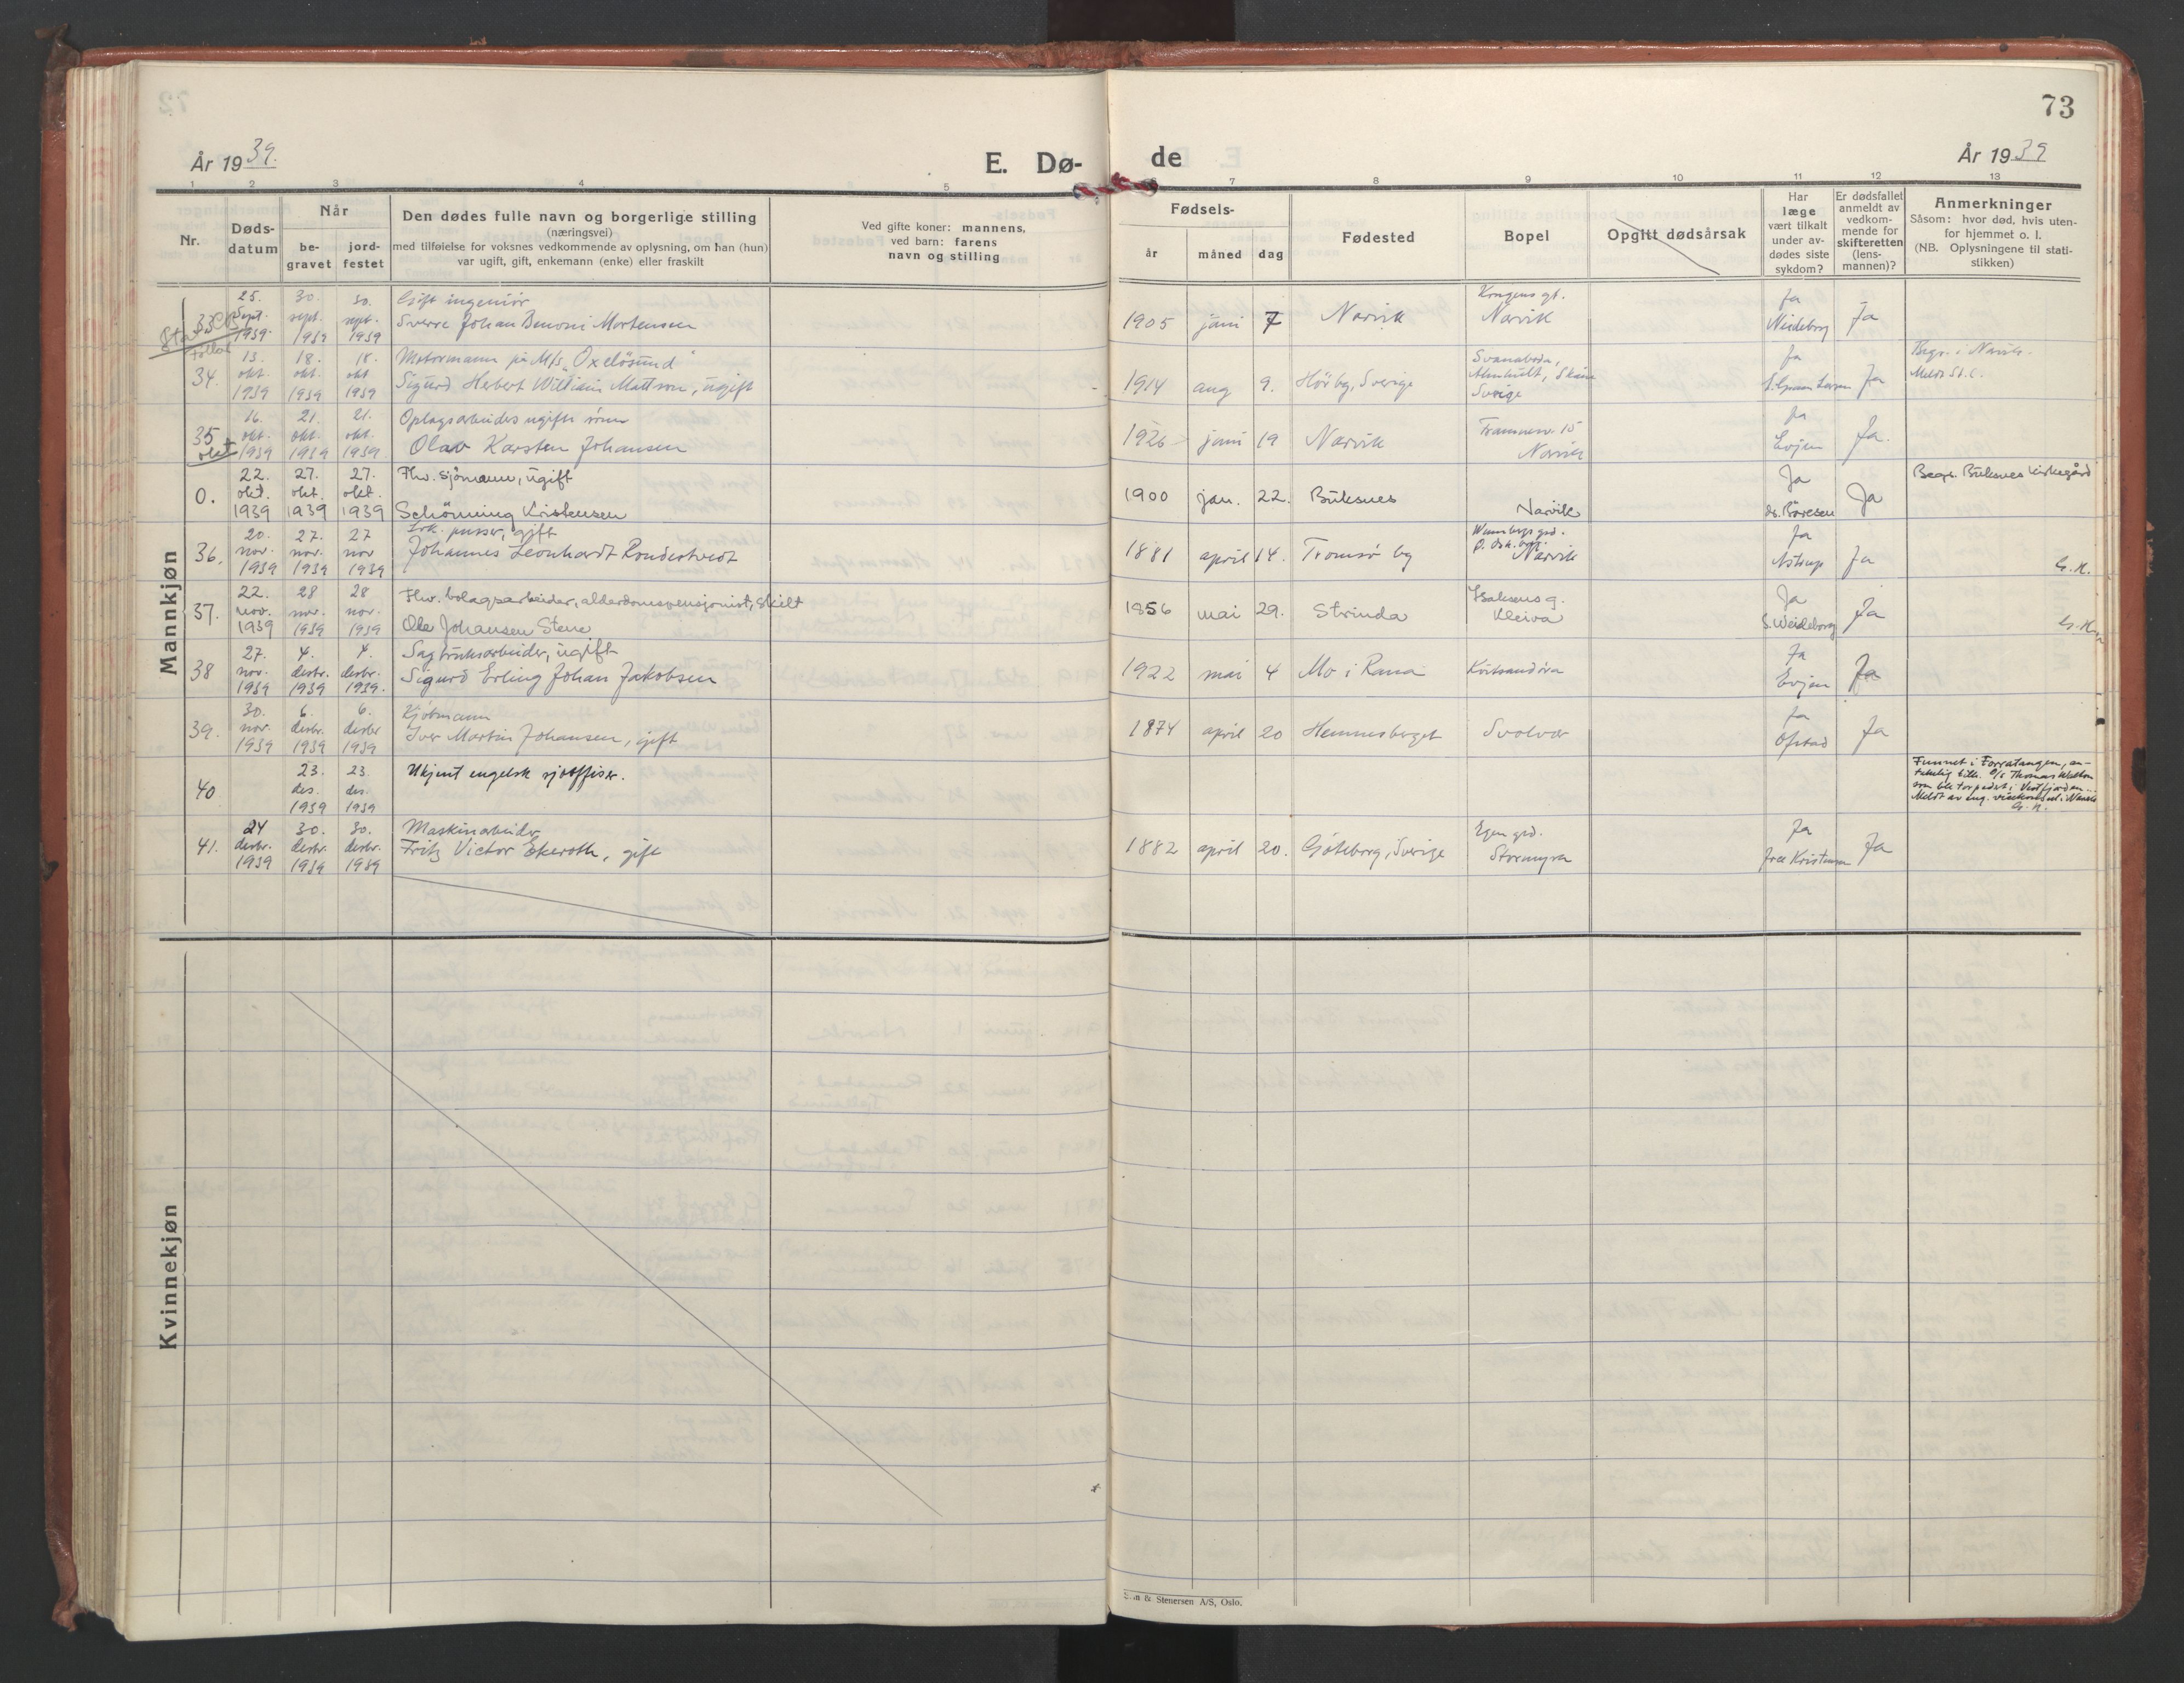 73
År 1939.
E. Dø-
de
År 1939
1 2 3 4 5
7 8 9 10 11 12 13
Nr.
Døds-
datum
Når
be-
gravet
jord-
festet
Den dødes fulle navn og borgerlige stilling
(næringsvei)
med tilføielse for voksnes vedkommende av oplysning, om han (hun)
var ugift, gift, enkemann (enke) eller fraskilt
Ved gifte koner: mannens,
ved barn: farens
navn og stilling
Fødsels-
år
måned
dag
Fødested
Bopel
Opgitt dødsårsak
Har
læge
vært tilkalt
under av-
dødes siste
sykdom?
Er dødsfallet
anmeldt av
vedkom-
mende for
skifteretten
(lens-
mannen)?
Anmerkninger
Såsom: hvor død, hvis uten-
for hjemmet o. l.
(NB. Oplysningene til stati-
stikken)
Mannkjøn
25. 30. 30. Gift ingeniør Kongens gt. Ja
33 sept. sept. sept. Sverre Johan Benoni Mortensen 1905 juni 7 Narvik Narvik Weideborg Ja
1939 1939 1939
13. 18. 18. Motormann på M/s „Oxelösund" Ja Begr. i Narvik.
34. okt. okt. okt Sigurd Herbert William Mattson, ugift 1914 aug 9. Hörby, Sverige Älmhult, Skåne Ja
1939 1939 1939 Sverige
16. 21. 21. Oplagsarbeides ugifte sønn Ja
35 okt. okt. okt. Olav Karsten Johansen 1926 juni 19 Narvik Narvik Evjen Ja.
1939 1939 1939
22. 27. 27. Fhv. sjømann, ugift Ja Begr. Buksnes kirkegård
0. okt. okt. okt. 1900 jan. 22. Buksnes Narvik Ja
1939 1939 1939 Schønning Kristensen dr. Båresen
20. 27. 27 pusser, gift Ja
36. nov. nov. nov Johannes Leonhardt 1881 april 14. Tromsø by Narvik Astrup Ja
1939 1939 1939 G. N.
22. 28 28 Fhv. bolagsarbeider, alderdomspensjonist, skilt Isaksens g. Ja
37. nov. nov. nov. 1856 mai 29. Strinda Kleiva S. Weideborg Ja
1939 1939 1939 Ole Johansen Stene
27. 4. 4. Sagbruksarbeider, ugift Ja
38 nov. desbr. desbr. Sigurd Erling Johan Jakobsen 1922 mai 4 Mo i Rana Kvitsandøra Evjen Ja
1939 1939 1939.
30. 6. 6. Kjøbmann Ja
39. nov. desbr. desbr Iver Martin Johansen, gift 1874 april 20 Hemnesberget Svolvær Ofstad Ja
1939 1939 1939
23. 23. Ukjent engelsk sjøoffiser. Funnet i Forratangen, an-
40 des. des. takelig tilh. S/s Thomas Walton
1939 1939 som ble torpedert i Vestfjorden.
Meldt av eng. visekonsul i Narvik
G. N.
24 30. 30. Maskinarbeider Egen grd. Ja
41. desbr. desbr. desbr. Fritz Victor Ekeroth, gift 1882 april 20. Göteborg, Sverige Storemyra Kristensen Ja
1939 1939 1939
Kvinnekjøn
& Stenersen A/S, Oslo.